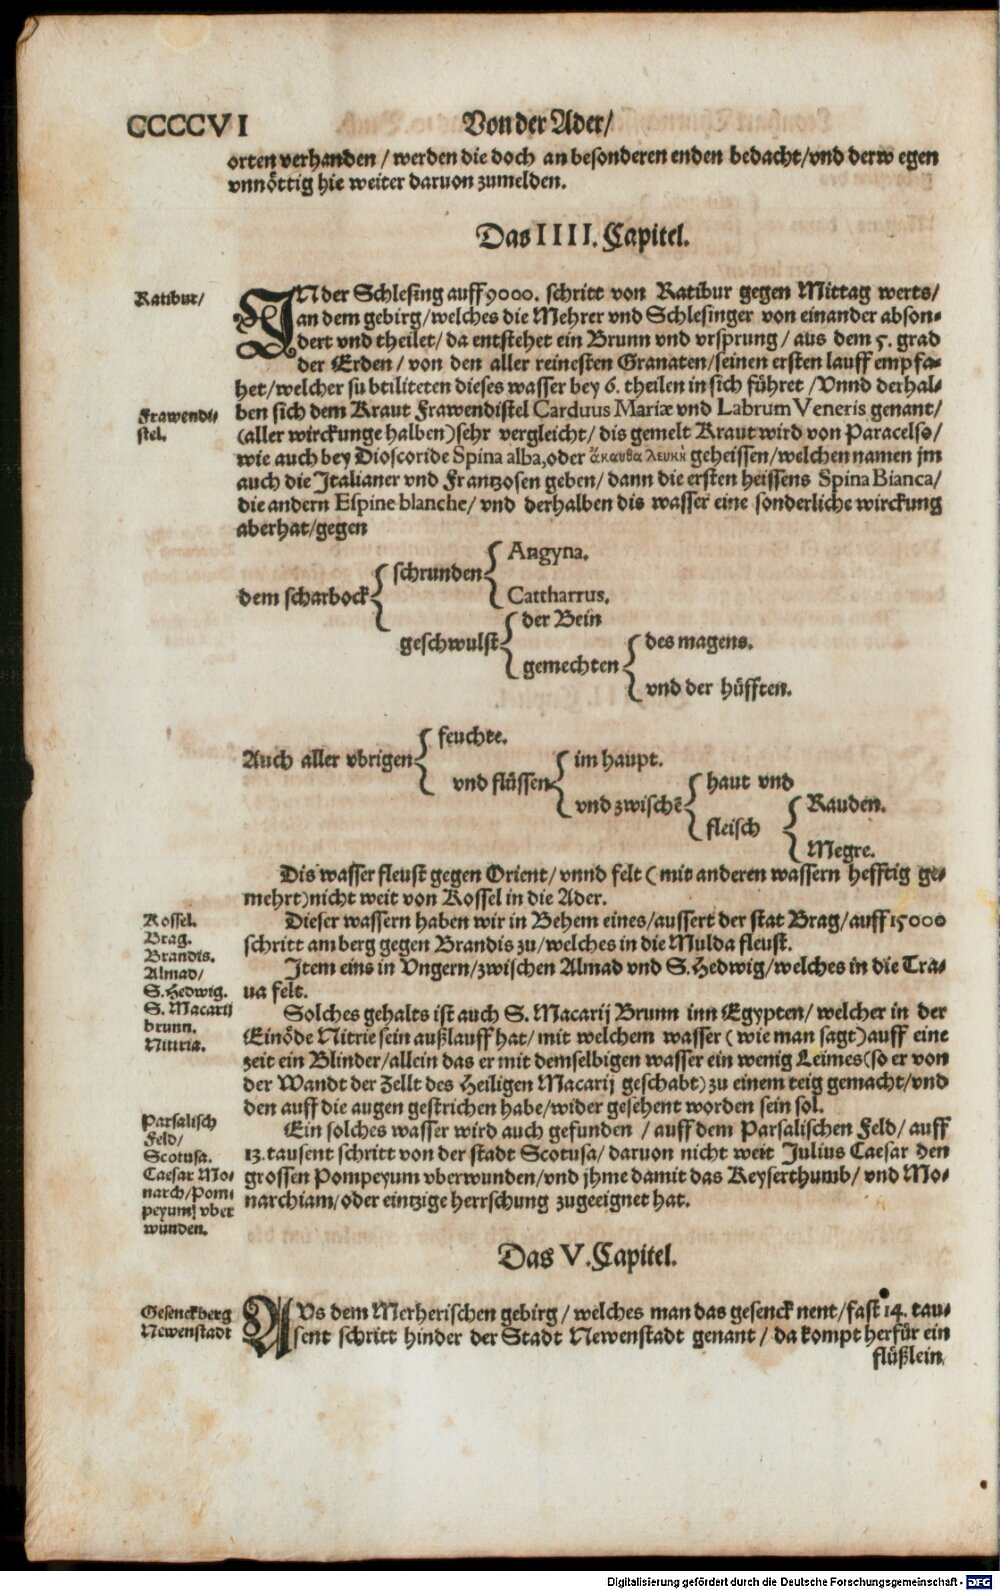 CCCCVI
Von der Ader/
orten verhanden / werden die doch an besonderen enden bedacht/vnd derwegen
vnnöttig hie weiter daruon zumelden.
Das IIII. Capitel.
Ratibur/
JN der Schlesing auff 9000. schritt von Ratibur gegen Mittag werts/
an dem gebirg/welches die Mehrer vnd Schlesinger von einander abson-
dert vnd theilet/ da entstehet ein Brunn vnd vrsprung / aus dem 5. grad
der Erden / von den aller reinesten Granaten/seinen ersten lauff empfa-
het/welcher subtiliteten dieses wasser bey 6. theilen in sich führet /Vnnd derhal-
Frawendi-
stel.
ben sich dem Kraut Frawendistel Carduus Mariæ vnd Labrum Veneris genant/
(aller wirckunge halben)sehr vergleicht/ dis gemelt Kraut wird von Paracelso/
wie auch bey Dioscoride Spina alba, oder ἄκανθα λευκὴ geheissen/welchen namen jm
auch die Italianer vnd Frantzosen geben/ dann die ersten heissens Spina Bianca/
die andern Espine blanche/ vnd derhalben dis wasser eine sonderliche wirckung
aberhat/gegen
dem scharbock
schrunden
Angyna.
Cattharrus.
geschwulst
der Bein
gemechten
des magens.
vnd der hüfften.
Auch aller vbrigen
feuchte.
vnd flüssen
im haupt.
vnd zwischē
haut vnd
fleisch
Rauden.
Megre.
Dis wasser fleust gegen Orient/ vnnd felt (mit anderen wassern hefftig ge-
mehrt)nicht weit von Kossel in die Ader.
Kossel.
Brag.
Brandis.
Almad/
S. Hedwig.
S. Macarij
brunn.
Nittria.
Dieser wassern haben wir in Behem eines/aussert der stat Brag/auff 15000
schritt am berg gegen Brandis zu/welches in die Mulda fleust.
Jtem eins in Vngern/zwischen Almad vnd S. Hedwig/welches in die Tra-
ua felt.
Solches gehalts ist auch S. Macarij Brunn inn Egypten/ welcher in der
Einöde Nitrie sein außlauff hat/ mit welchem wasser ( wie man sagt)auff eine
zeit ein Blinder/allein das er mit demselbigen wasser ein wenig Leimes(so er von
der Wandt der Zellt des Heiligen Macarij geschabt)zu einem teig gemacht/vnd
den auff die augen gestrichen habe/wider gesehent worden sein sol.
Parsalisch
Feld/
Scotusa.
Caesar Mo-
narch/Pom-
peyum vber
wunden.
Ein solches wasser wird auch gefunden / auff dem Parsalischen Feld/ auff
13. tausent schritt von der stadt Scotusa/ daruon nicht weit Julius Caesar den
grossen Pompeyum vberwunden/vnd jhme damit das Keyserthumb/ vnd Mo-
narchiam/oder eintzige herrschung zugeeignet hat.
Das V. Capitel.
Gesenckberg
Newenstadt
AVs dem Merherischen gebirg / welches man das gesenck nent/fast 14. tau-
sent schritt hinder der Stadt Newenstadt genant / da kompt herfür ein
flüßlein.
Digitalisierung gefördert durch die Deutsche Forschungsgemeinschaft - DFG